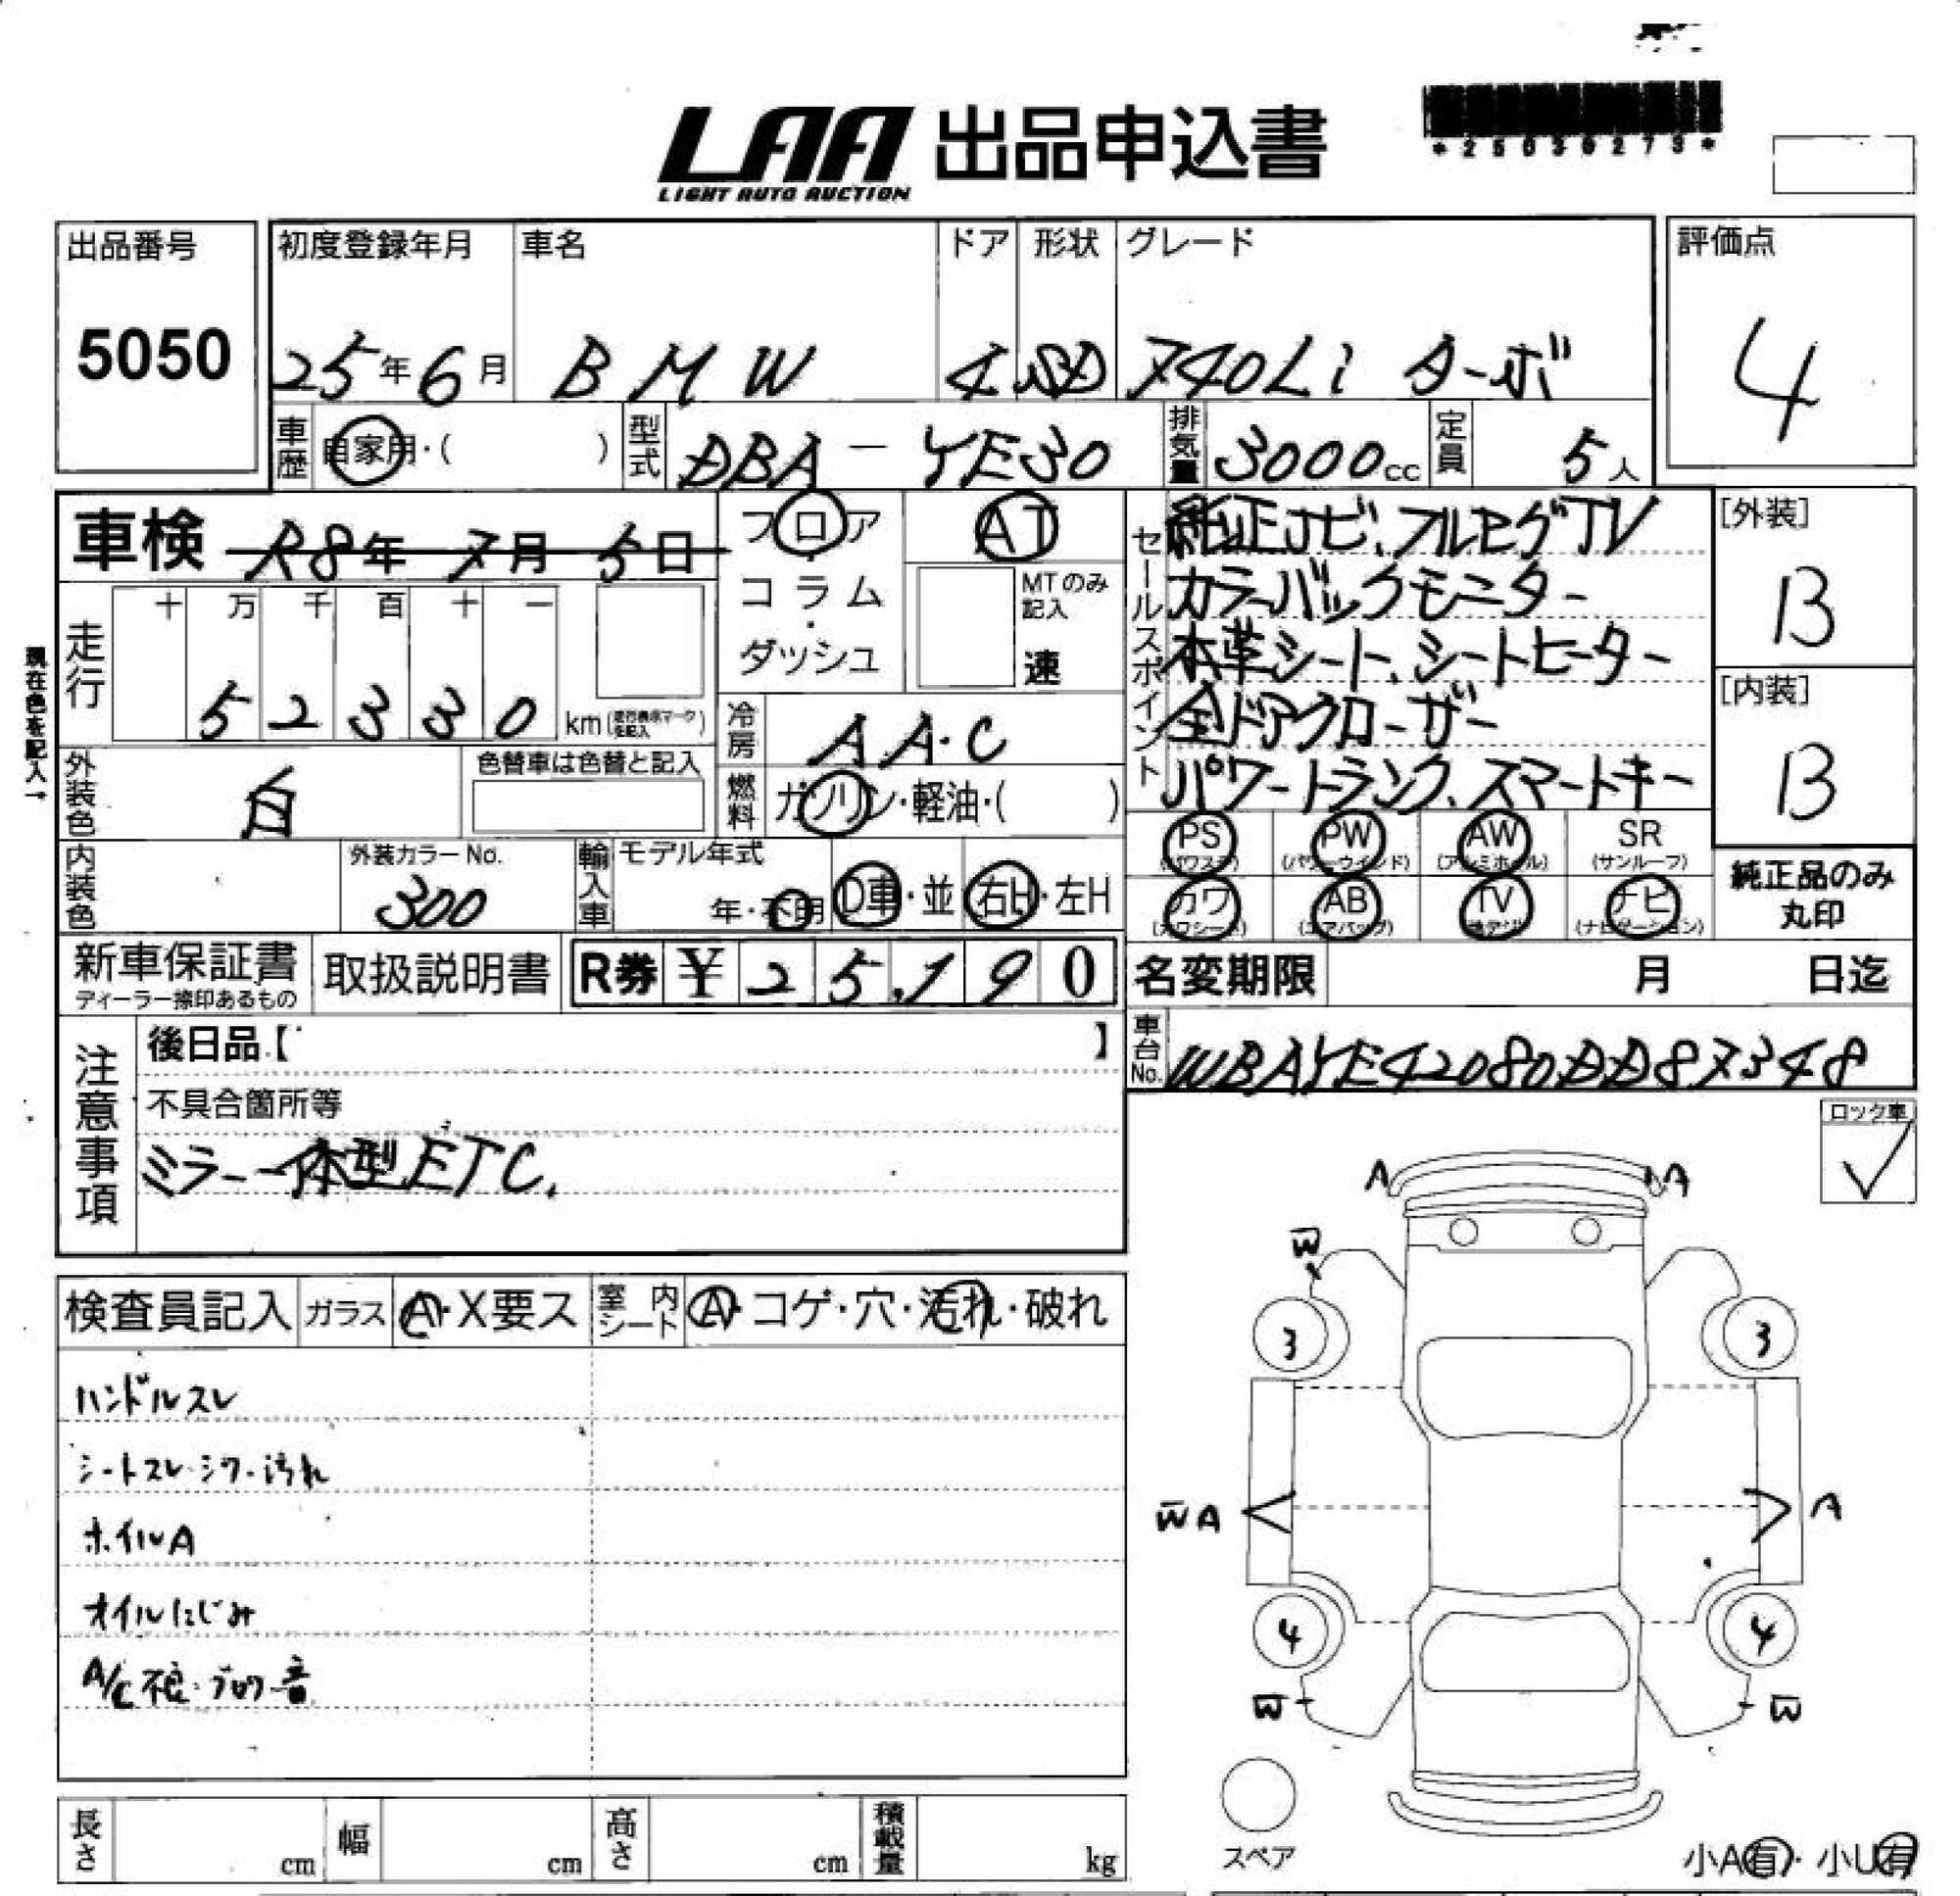 LAA 出品申込書
LIGHT AUTO AUCTION
*25030273*
出品番号
5050
初度登録年月
25年6月
車名
BMW
ドア
4
形状
SD
グレード
740Li ターボ
評価点
4
車歴 自家用・( )
型式 DBA-YE30
排気量 3000cc
定員 5人
車検 R8年7月5日
フロア・コラム・ダッシュ
AT
MTのみ記入
速
走行
十 万 千 百 十 一
5 2 3 3 0 km
現在色を記入→
冷房 AA・C
燃料 ガソリン・軽油・( )
外装色 白
色替車は色替と記入
内装色
外装カラーNo. 300
輸入車 モデル年式 年・不明
D車・並
右H・左H
セールスポイント
純正ナビ、フルセグTV
カラーバックモニター
本革シート、シートヒーター
全ドアクローザー
パワートランク、スマートキー
[外装]
B
[内装]
B
PS (パワステ) PW (パワーウインド) AW (アルミホイル) SR (サンルーフ)
カワ (カワシート) AB (エアバック) TV (地デジ) ナビ (ナビゲーション)
純正品のみ
丸印
新車保証書
ディーラー捺印あるもの
取扱説明書
R券 ¥ 25,190
名変期限 月 日迄
車台No. WBAYE42080DD87348
注意事項
後日品【 】
不具合箇所等
ミラー一体型ETC.
ロック車
✓
検査員記入
ガラス A・X要ス
室内シート A・コゲ・穴・汚れ・破れ
ハンドルスレ
シートスレ・シワ・汚れ
ホイルA
オイルにじみ
A/C不良・ブロワー音
A A
W
3 3
WA A
4 4
W W
スペア
小A有・小U有
長さ cm
幅 cm
高さ cm
積載量 kg